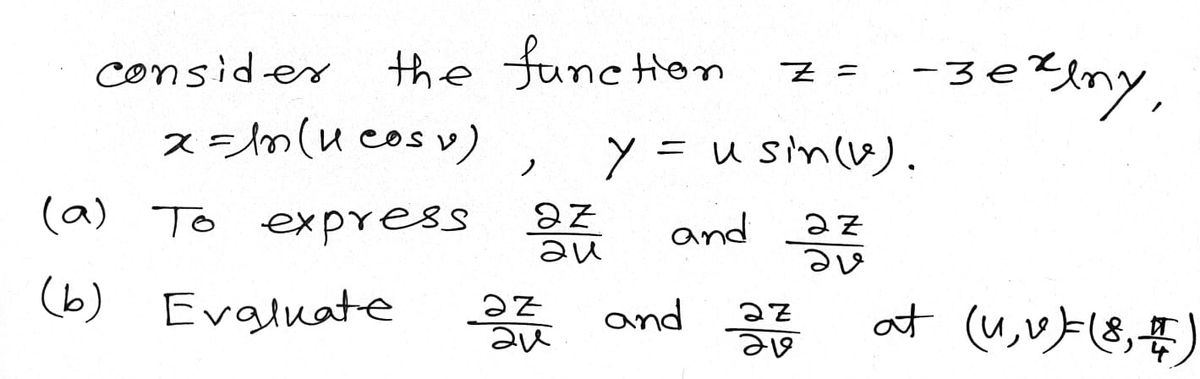 consider the function z = -3e^x lny,
x = ln(u cos v) , y = u sin(v).
(a) To express ∂z/∂u and ∂z/∂v
(b) Evaluate ∂z/∂u and ∂z/∂v at (u,v)=(8, π/4)